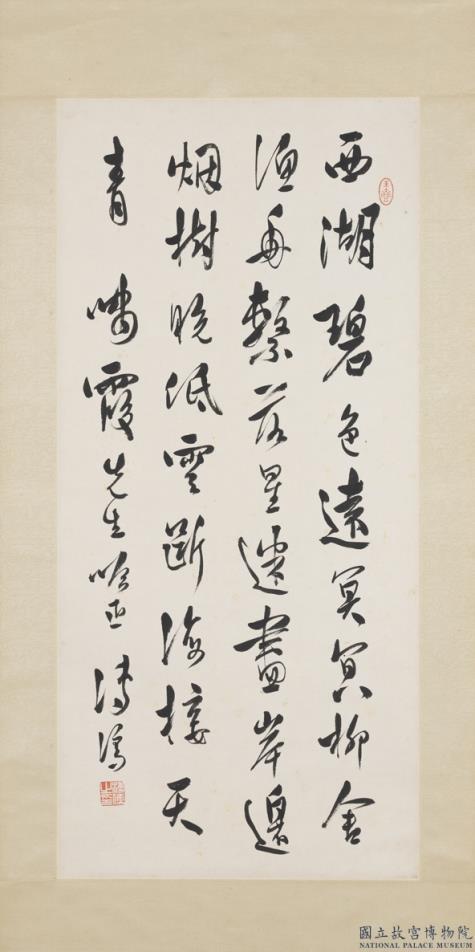 西湖碧色遠冥冥柳舍
漁舟繫落星遮盡岸邊
烟樹晚低雲斷接天
青
嘯霞先生吟正 溥儒
國立故宮博物院
NATIONAL PALACE MUSEUM